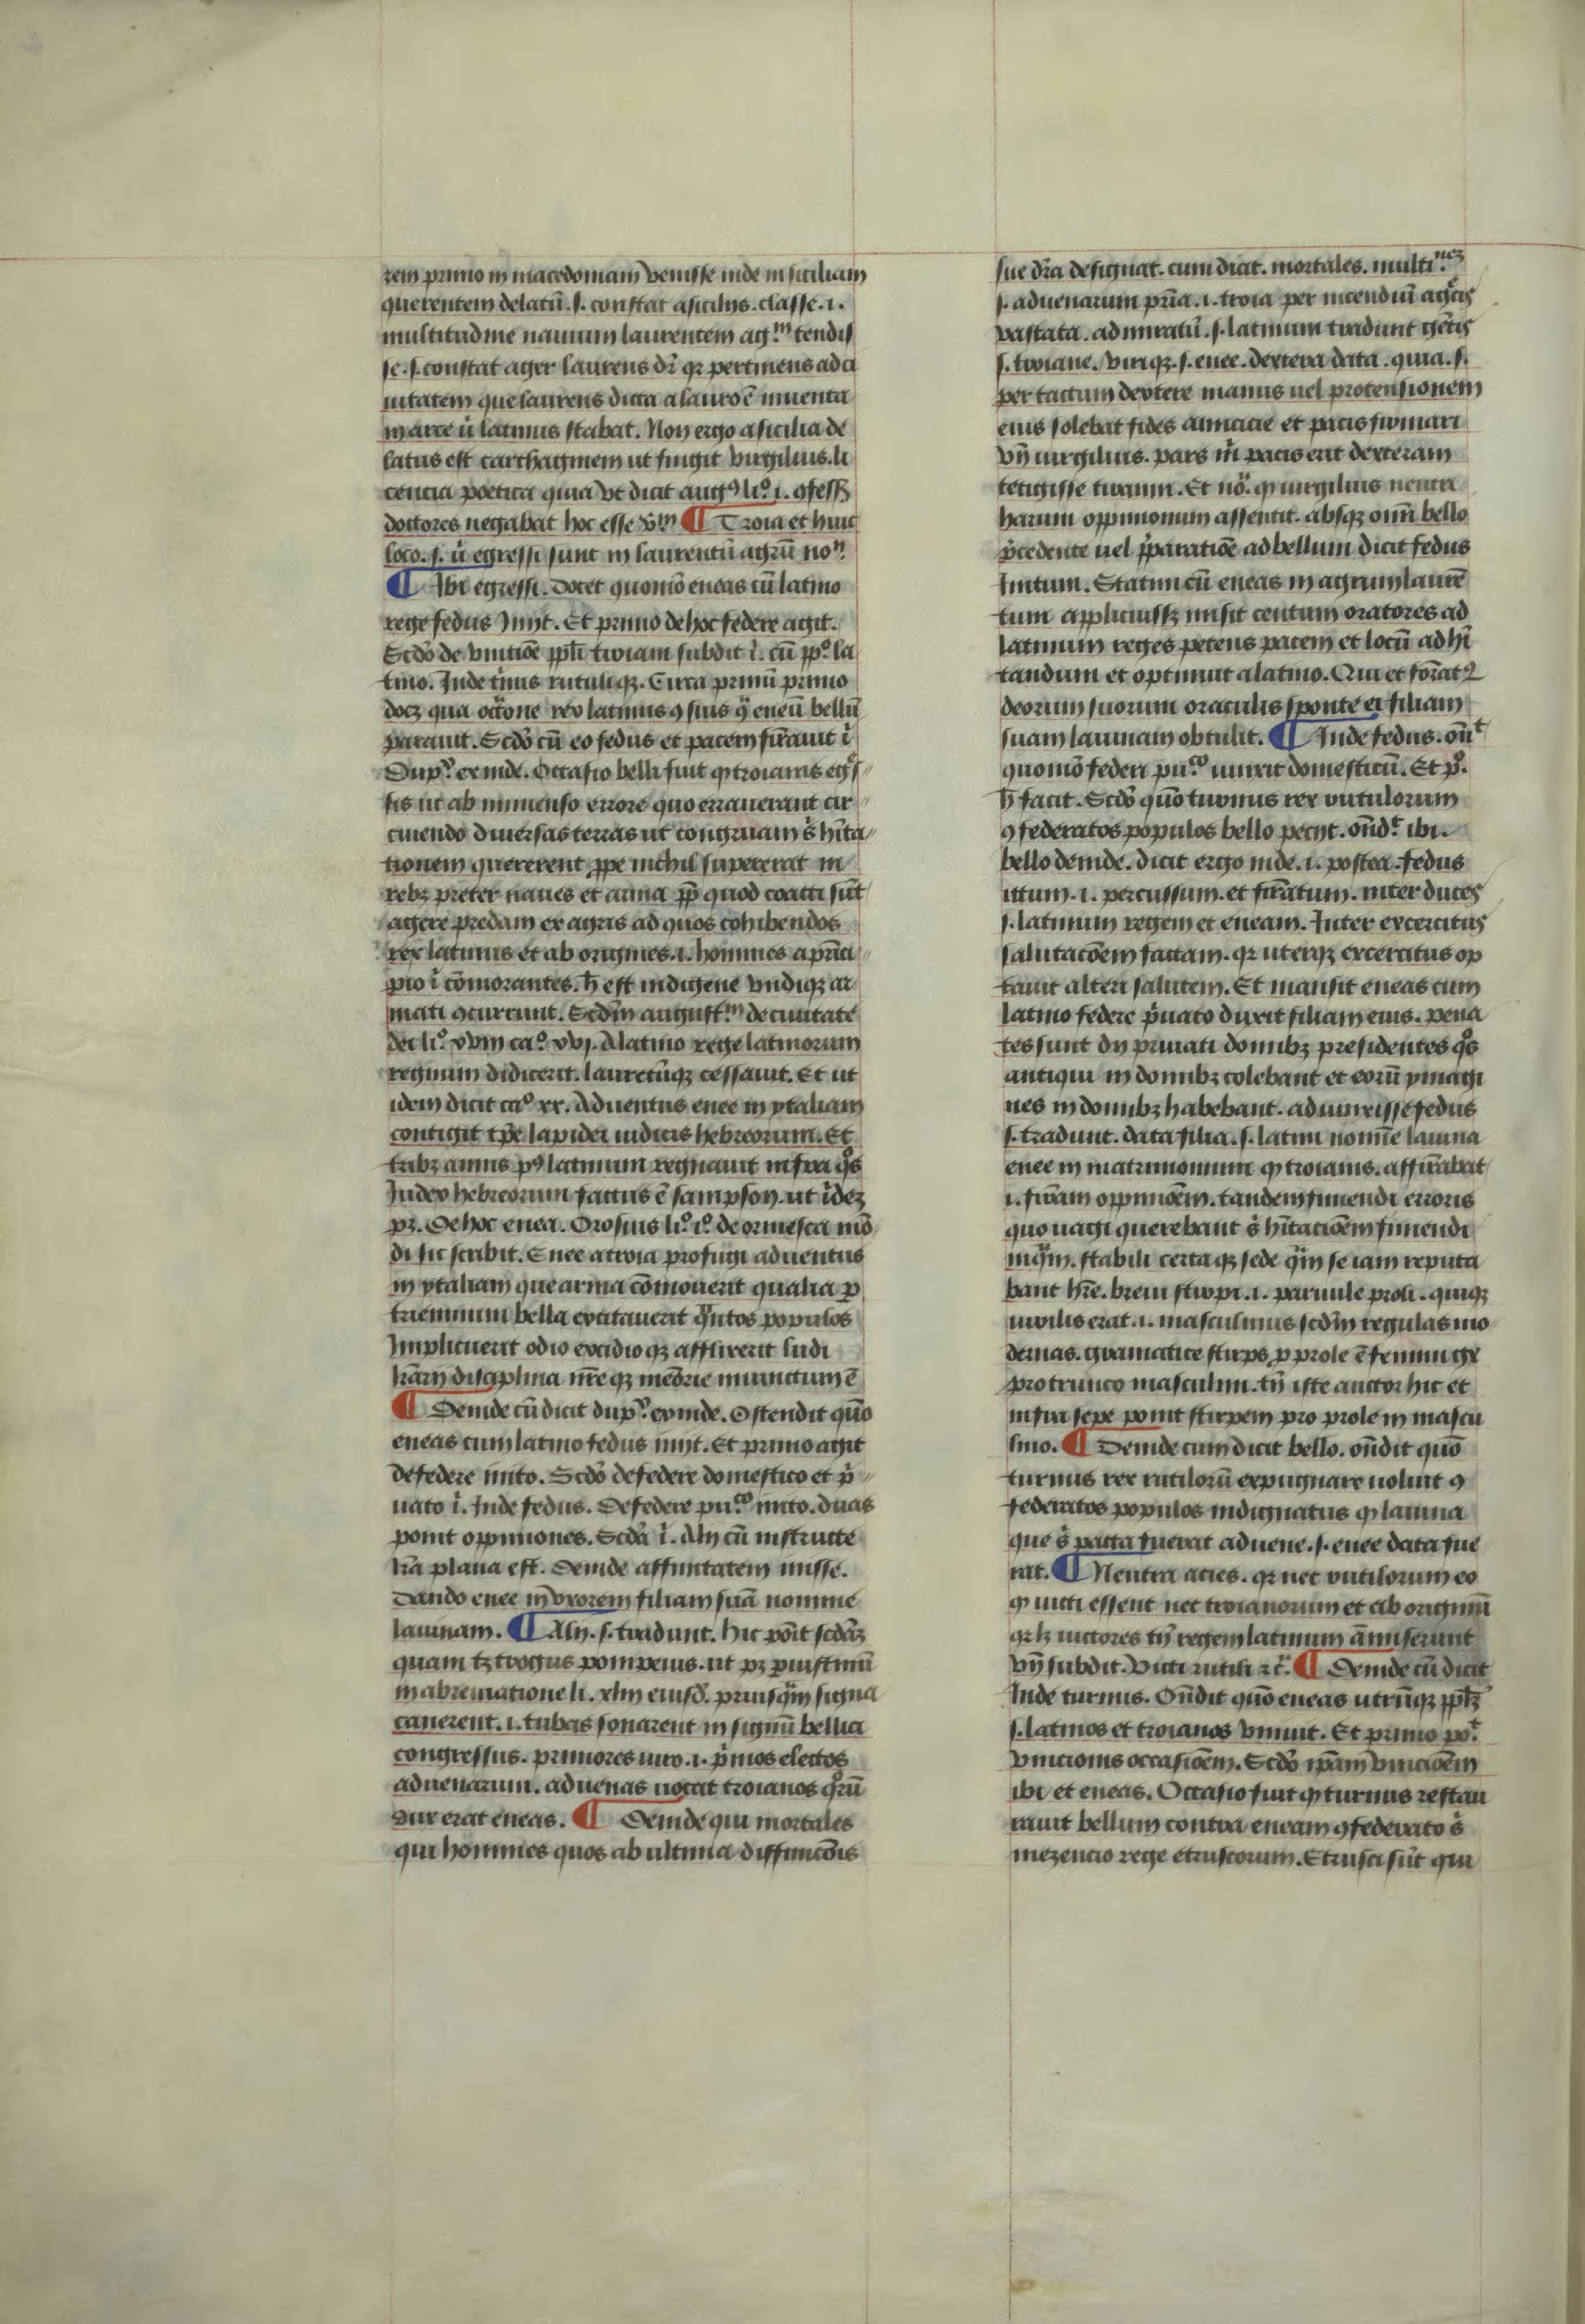 rem primo in macedoniam venisse inde in siciliam
querentem delatū .s. constat a sicilis. classe .i.
multitudine nauium laurentem ag.m tendis
se .s. constat ager laurens dr̄ qr pertinens ad ci
uitatem que laurens dicta a lauro ē inuenta
in arce ū latinus stabat. Non ergo a sicilia de
latus est carthaginem ut fingit virgilius. li
cencia poetica quia vt dicit augꝰ li.o i. ꝯfess̄
doctores negabāt hoc esse v̄m ¶ Troia et huic
loco .s. u̇ egressi sunt in laurentū agrū no.n
¶ Ibi egressi. Docet quomō eneas cū latino
rege fedus Iniit. Et primo de hoc federe agit.
Scd̄o de vnitiōe ppl̄i troiani subdit i̇. cū pp.o la
tino. Inde t̄nus rutuliqꝫ. Circa primū primo
docꝫ qua occ̄one rex latinus ꝯ suis ꝯ̄ eneū bellū
parauit. Scd̄o cū eo fedus et pacem firāuit i̇
Dup.r exinde. Occasio belli fuit ꝙ troianis egs̄
sis ut ab inmenso errore quo errauerant cir
cuiendo diuersas terras ut congruam s̄ hīta
tionem quererent ꝓpe nichil supererat in
rebꝫ preter naues et arma ꝓp̄ quod coacti sūt
agere predam ex agris ad quos cohibendos
rex latinus et ab origines .i. homines a prīci
pio i̇ cōmorantes. h̄ est indigene vndiqꝫ ar
mati ꝯcurrunt. Scd̄m august.m de ciuitate
dei li.o xviii ca.o xvi. A latino rege latinorum
regnum didicerit. lauretūqꝫ cessauit. Et ut
idem dicit ca.o xx. Aduentus enee in ytaliam
contigit tp̄e lapidei iudicis hebreorum. Et
tribꝫ annis pꝰ latinum regnauit infra qo̊s
Iudex hebreorum factus ē sampson. ut ib̄idē
pꝫ. De hoc enea. Orosius li.o i.o de ormesta mō
di sic scribit. Enee a troia profugi aduentus
in ytaliam que arma cōmouerit qualia ꝑ
triennium bella excitauerit qͣntos populos
Implicuerit odio excidioqꝫ afflixerit ludi
lrāɤ disciplina nr̄eqꝫ mēorie inunctum ē
¶ Deinde cū dicit dup.r exinde. Ostendit quō
eneas cum latino fedus iniit. Et primo agit
de federe inito. Scd̄o de federe domestico et p̄
uato i̇. Inde fedus. De federe pu.co inito. duas
ponit opiniones. Scd̄a i̇. Alij cū instructe
lrā plana est. Deinde affinitatem iunisse.
Dando enee in vxorem filiam suā nomine
lauinam. ¶ Alij .s. tradunt. Hic pōit scd̄aꝫ
quam tꝫ trogus pompeius. ut pꝫ ꝑ iustinū
in abreuiatione li. xliii eiusd̄. priusqͣm signa
canerent .i. tubis sonarent in signū bellici
congressus. primores uiro .i. p̄mos electos
aduenarum. aduenas uocat troianos qo̊rū
dux erat eneas. ¶ Deinde qui mortales
qui homines quos ab ultima diffinicōis
sue dr̄a designat. cum dicit. mortales. multi.nez
.s. aduenarum prīa .i. troia per incendiū ag̊cis
vastata. admiratū .s. latinum tradunt gētis
.s. troiane. viriqꝫ .s. enee. dextera data. quia .s.
per tactum dextere manus uel protensionem
eius solebat fides amicicie et pacis firmari
vn̄ uirgilius. pars m̄ pacis erit dexteram
tetigisse tiranni. Et no.a ꝙ uirgilius neutri
harum oppinionum assentit. absqꝫ om̄i bello
p̄cedente uel p̄paratiōe ad bellum dicit fedus
Initum. Statim cū eneas in agrum laurē
tum applicuissꝫ misit centum oratores ad
latinum reges petens pacem et locū ad hi
tandum et optinuit a latino. Qui et forāt
deorum suorum oraculis sponte ei filiam
suam lauinam obtulit. ¶ Inde fedus. on̄.t
quomō federi pu.co iunxit domesticū. Et p.o
h̄ facit. Scd̄o quō turnus rex rutulorum
ꝯfederatos populos bello petijt. on̄d.t ibi.
bello deinde. dicit ergo inde .i. postea fedus
ictum .i. percussum. et firātum. inter duces
.s. latinum regem et eneam. Inter excercitus
salutacōem factam. qr uterqꝫ excercitus op
tauit alteri salutem. Et mansit eneas cum
latino federe p̄uato duxit filiam eius. pena
tes sunt dij priuati domibꝫ presidentes qo̊s
antiqui in domibꝫ colebant et eorū ymagi
nes in domibꝫ habebant. adiunxisse fedus
.s. tradunt. data filia .s. latini nomīe lauina
enee in matrimonium ꝙ troianis. affirābat
.i. firām oppiniōem. tandem finiendi erroris
quo uagi querebant s̄ hītatiōem finiendi
inqͣm. stabili certaqꝫ sede qͣm se iam reputa
bant hr̄e. breui stirpi .i. paruule proli. quiqꝫ
uirilis erat .i. masculinus scd̄m regulas mo
dernas. gramatice stirps ꝓ prole ē feminī gn̄
pro trunco masculini. tn̄ iste auctor hic et
infra sepe ponit stirpem pro prole in mascu
lino. ¶ Deinde cum dicit bello. on̄dit quō
turnus rex rutilorū expugnare uoluit ꝯ
federatos populos indignatus ꝙ lauina
que s̄ pacta fuerat aduene .s. enee data fue
rat. ¶ Neutra acies. qr nec rutilorum eo
ꝙ uicti essent nec troianorum et ab originū
qr lꝫ uictores tn̄ regem latinum āmiserunt
vn̄ subdit. Victi rutili ⁊ c̄. ¶ Deinde cū dicit
Inde turnus. On̄dit quō eneas utrūqꝫ ppl̄ꝫ
.s. latinos et troianos vniuit. Et primo po.t
vnicionis occasiōem. Scd̄o ip̄am vniciōem
ibi et eneas. Occasio fuit ꝙ turnus restau
rauit bellum contra eneam ꝯfederato s̄
mezencio rege etruscorum. Etrusci sūt qui